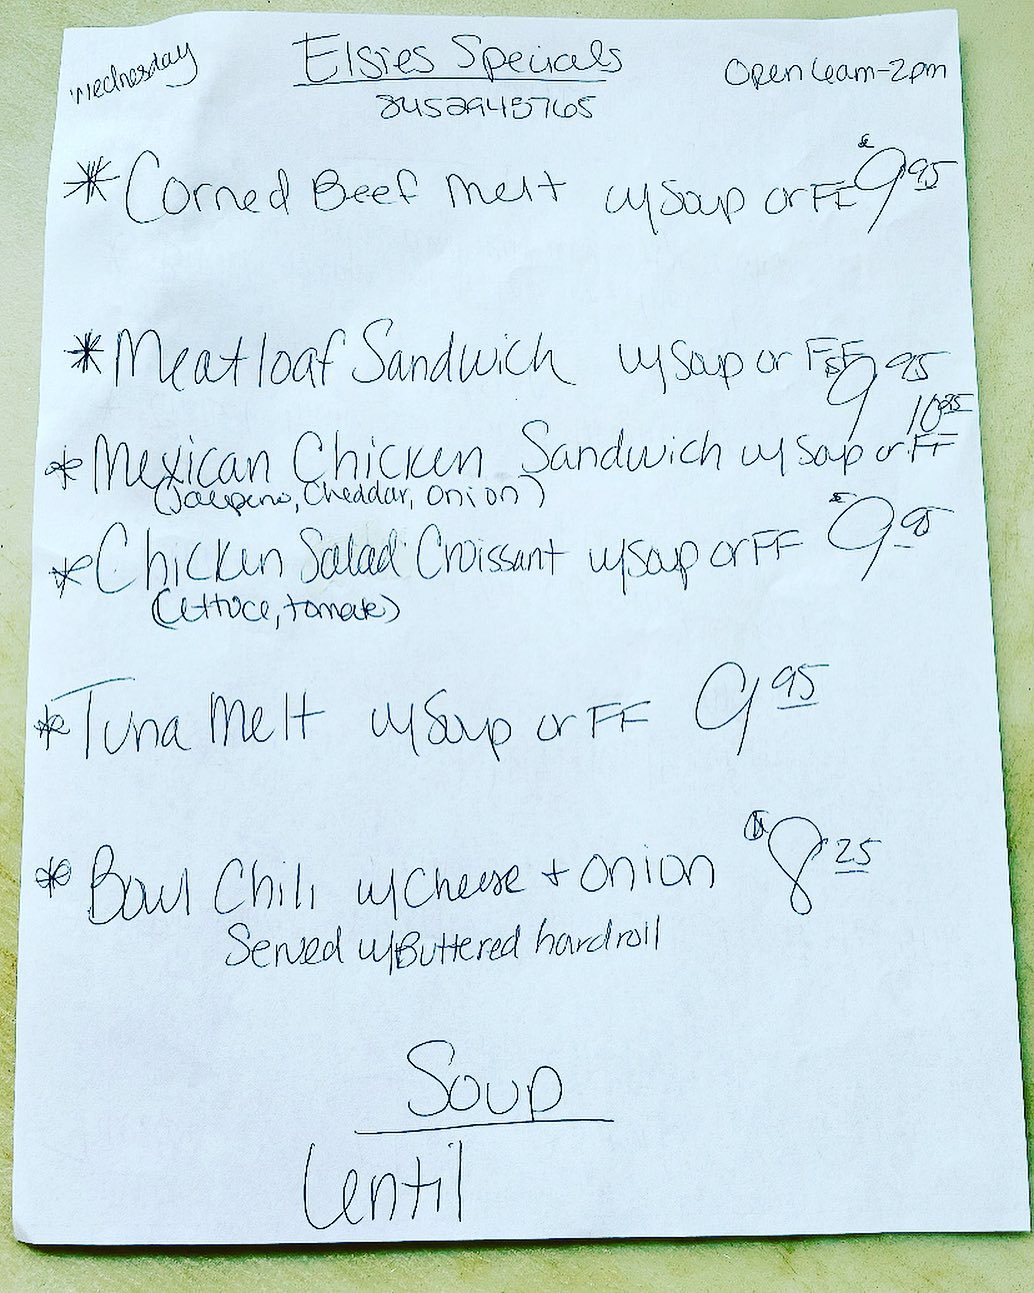 Wednesday Elsies Specials Open 6am-2pm
8452945765
* Corned Beef Melt w/Soup or FF $9.95
* Meatloaf Sandwich w/Soup or FF $9.95
* Mexican Chicken Sandwich w/Soup or FF 10.95
(Jalepeno, Cheddar, onion)
* Chicken Salad Croissant w/Soup or FF $9.95
(Lettuce, tomato)
* Tuna Melt w/Soup or FF 9.95
* Bowl Chili w/Cheese + Onion $8.25
Served w/Buttered hard roll
Soup
Lentil